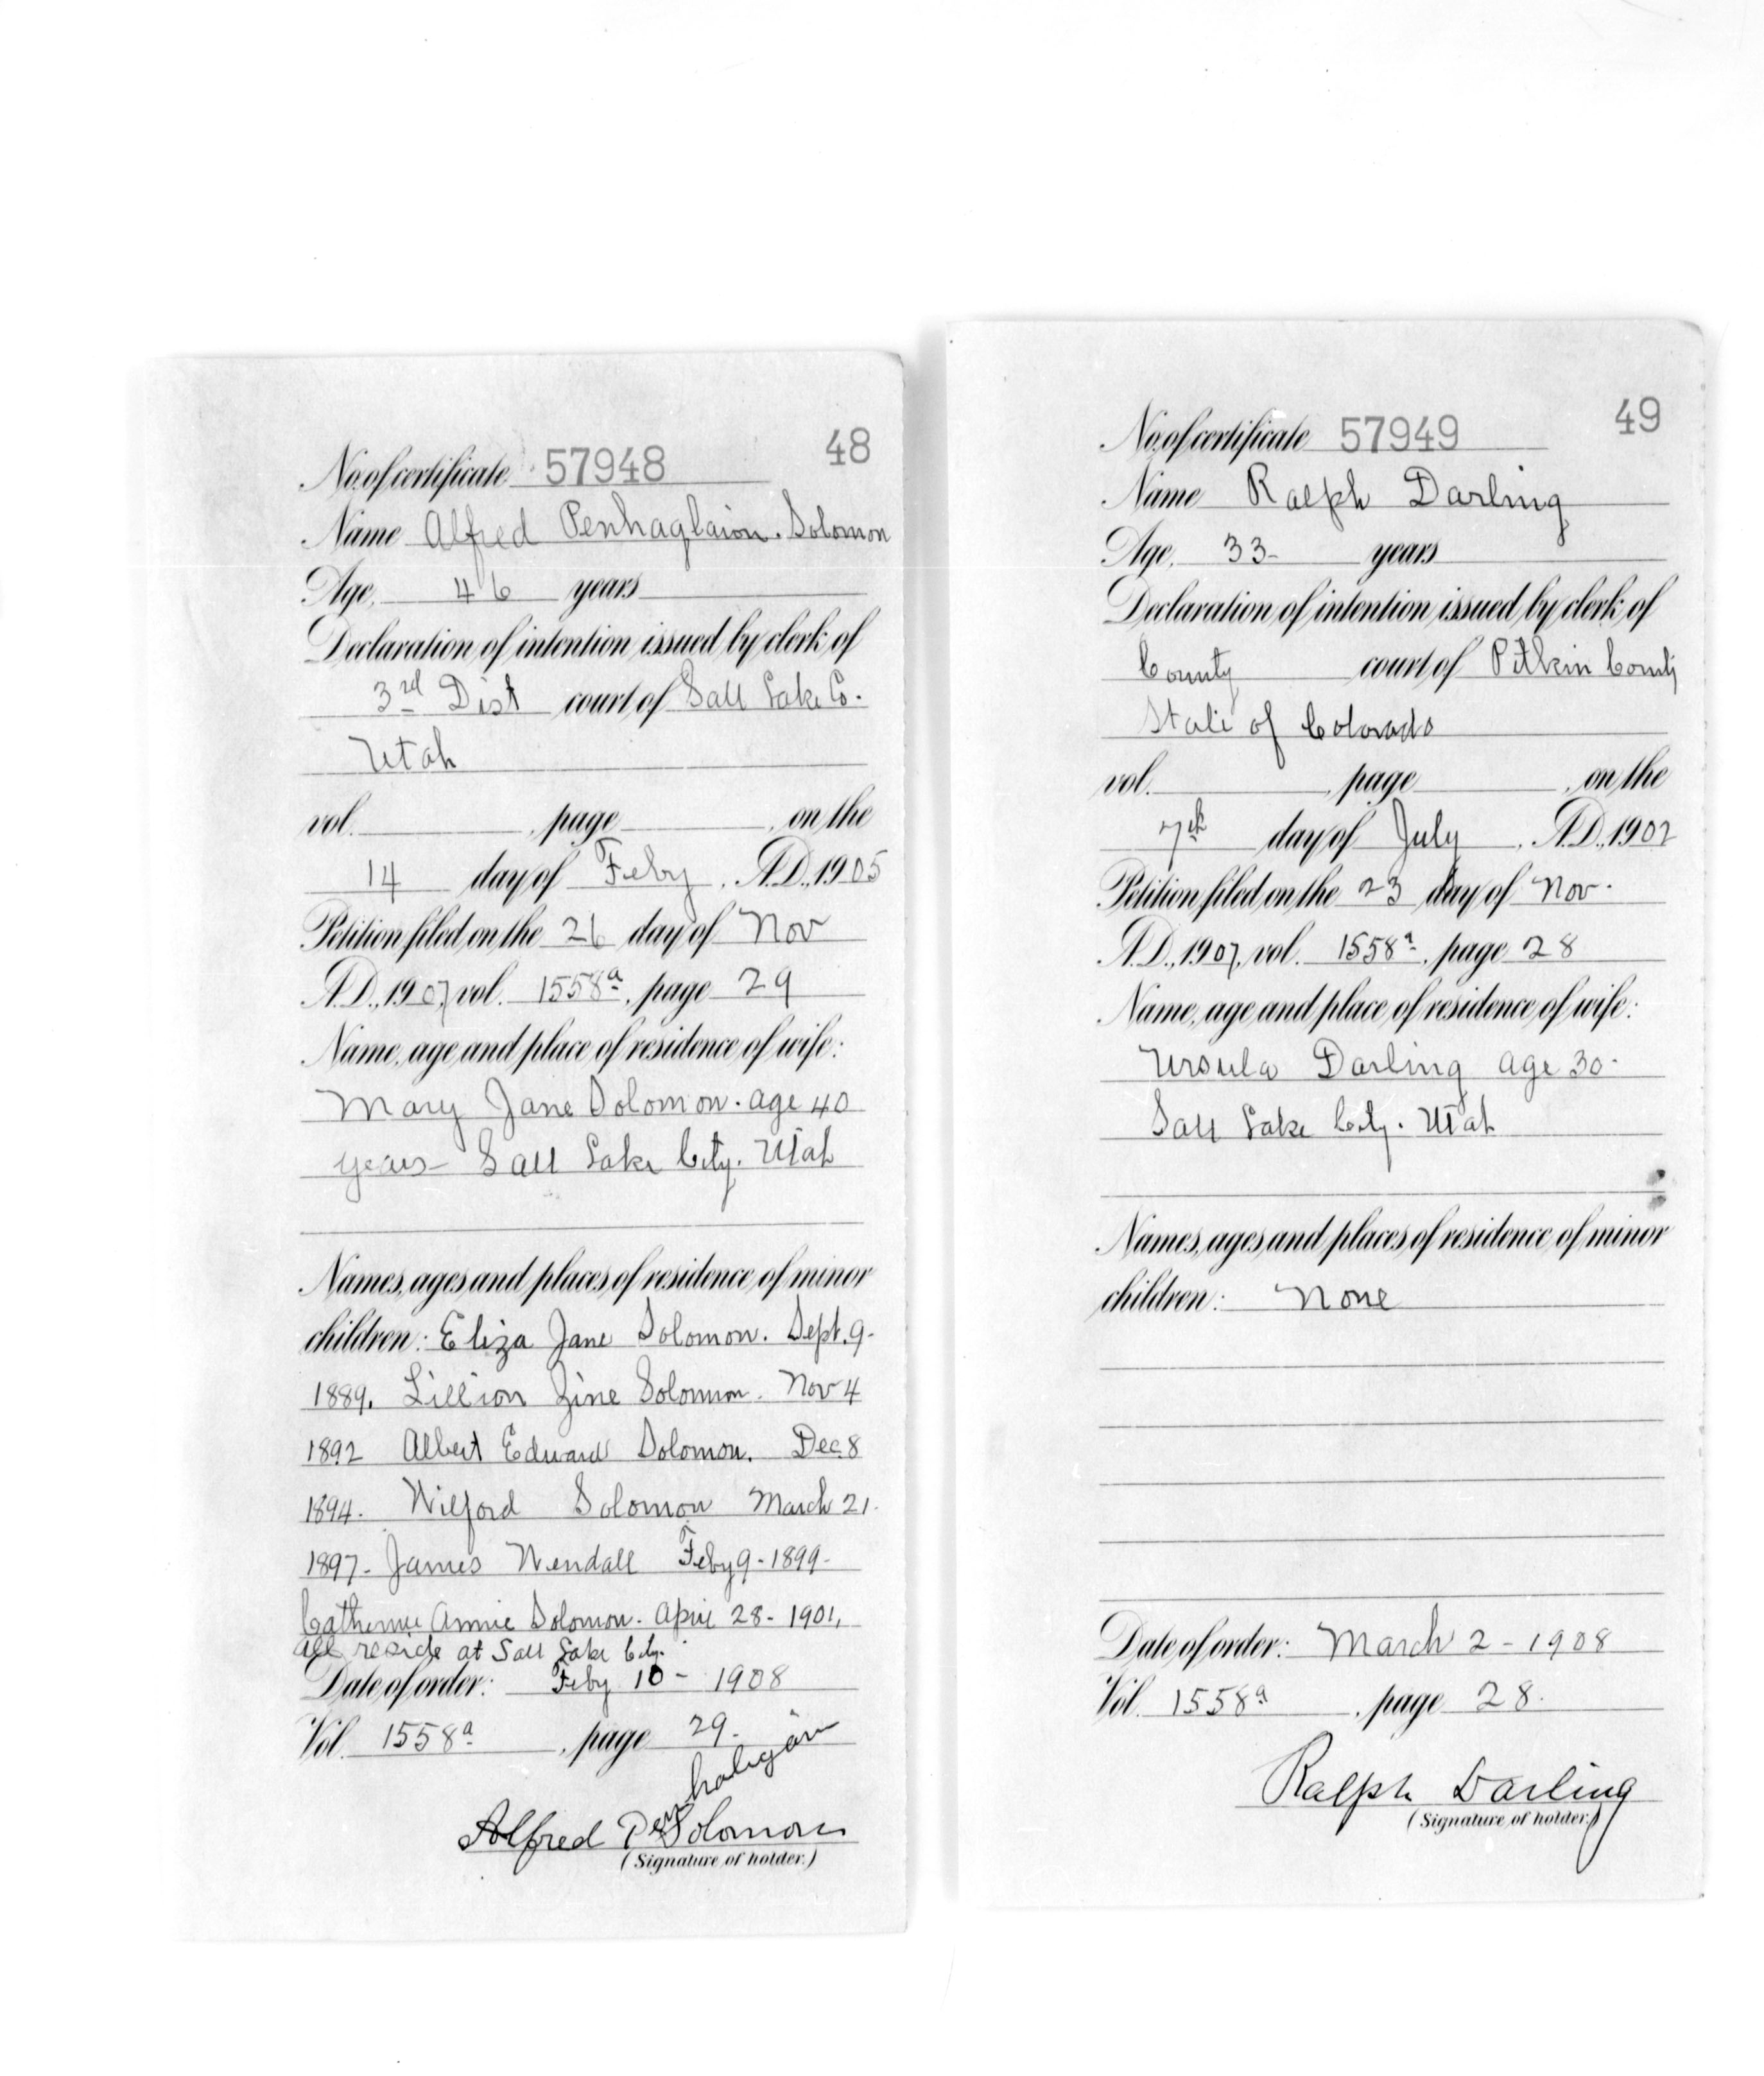 48
No. of certificate 57948
Name Alfred Penhaglaion. Solomon
Age, 46 years
Declaration of intention issued by clerk of
3rd Dist court of Salt Lake Co.
Utah
vol. , page , on the
14 day of Feby, A.D., 1905
Petition filed on the 26 day of Nov
A.D., 1907, vol. 1558a, page 29
Name, age and place of residence of wife:
Mary Jane Solomon. age 40
years - Salt Lake City. Utah
Names, ages and places of residence of minor
children: Eliza Jane Solomon. Sept. 9-
1889. Lillion Zine Solomon. Nov 4
1892 Albert Edward Solomon. Dec. 8
1894. Wilford Solomon March 21.
1897- James Wendall Feby 9-1899-
Catherine Annie Solomon. April 28-1901,
all reside at Salt Lake City.
Date of order: Feby 10- 1908
Vol. 1558a, page 29.
Alfred Penhaligan Solomon
(Signature of holder.)
49
No. of certificate 57949
Name Ralph Darling
Age, 33- years
Declaration of intention issued by clerk of
County court of Pitkin County
State of Colorado
vol. , page , on the
7th day of July, A.D., 1902
Petition filed on the 23 day of Nov.
A.D., 1907, vol. 1558a, page 28
Name, age and place of residence of wife:
Ursula Darling age 30-
Salt Lake City. Utah
Names, ages and places of residence of minor
children: None
Date of order: March 2-1908
Vol. 1558a, page 28.
Ralph Darling
(Signature of holder.)